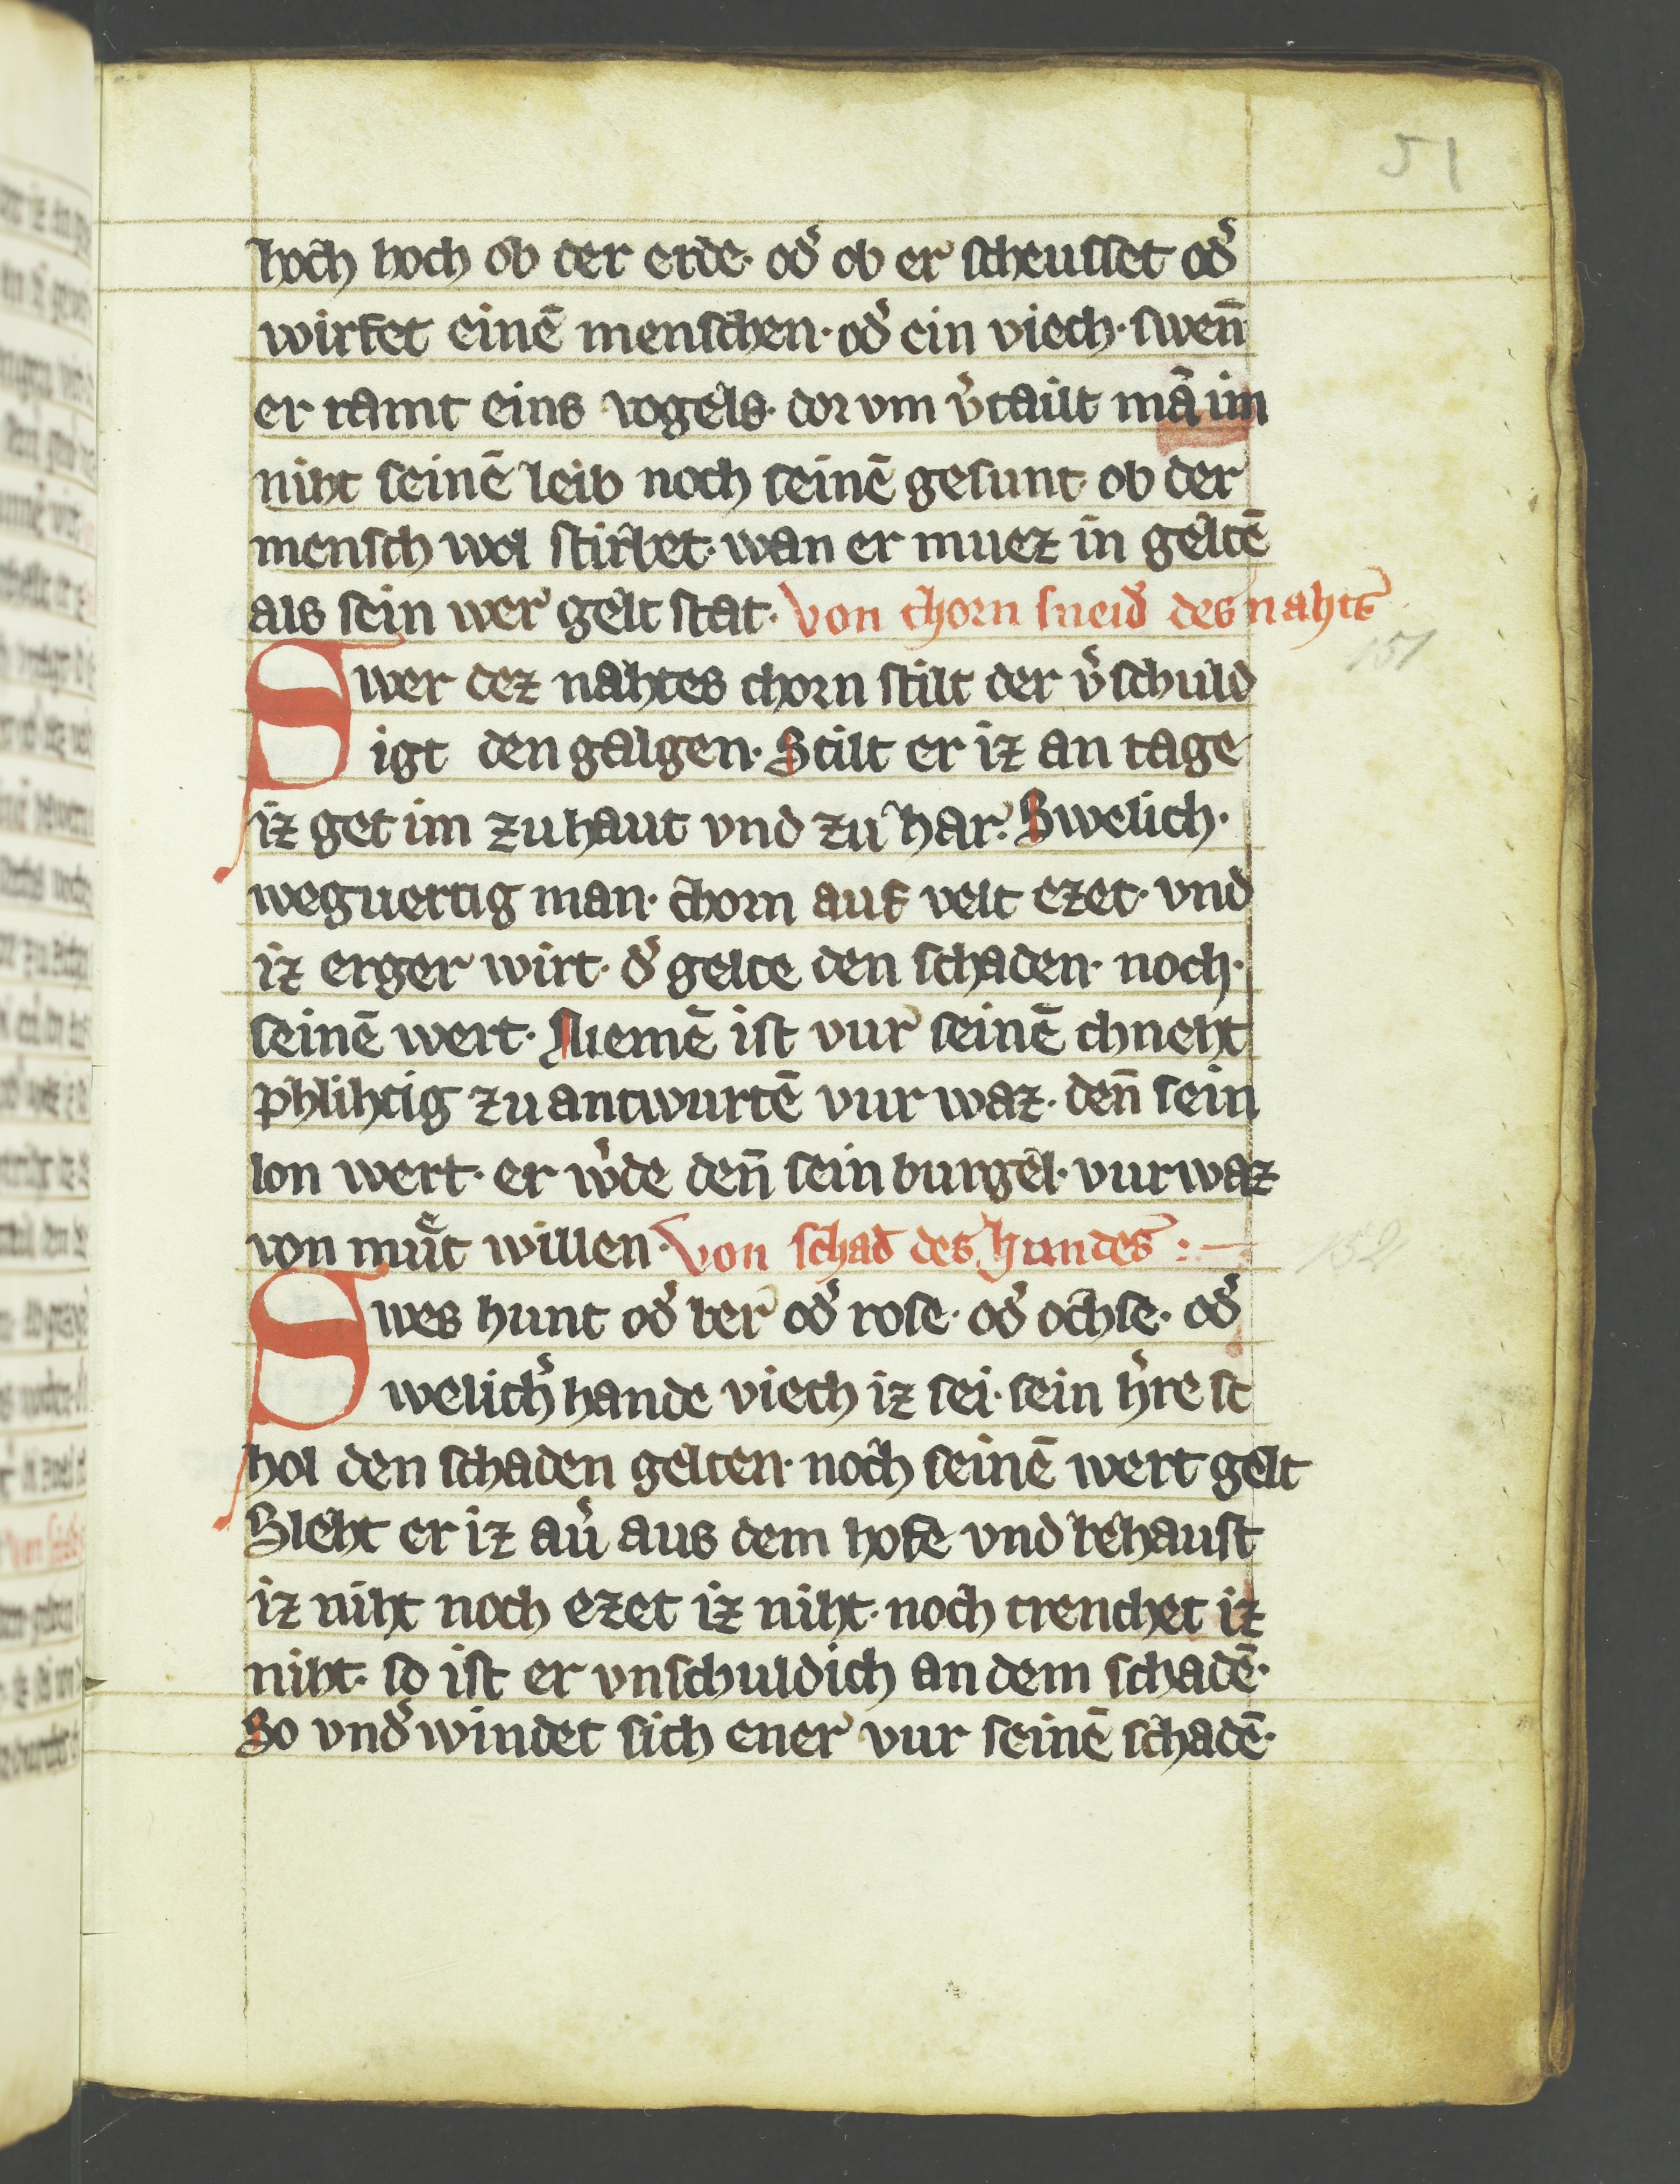 51
hoch hoch ob der erde· od͛ ob er scheusset od͛
wirfet einē menschen· od͛ ein viech· swen̄
er ramt eins vogels· dor vm v͛tailt mā im
niht seinē leib noch seinē gesunt· ob der
mensch wol stirbet· wan er muez in geltē
als sein wer gelt stat· Von chorn sneid͛ des nahts
151
Swer dez nahtes chorn stilt der v͛schuld
igt den galgen· Stilt er iz an tage
iz get im zu haut vnd zu har· Swelich·
weguertig man· chorn auf velt ezet· vnd
iz erger wirt· d͛ gelte den schaden· noch·
seinē wert· Niemē ist vur seinē chneht
phlihtig zu antwurtē vur waz· den̄ sein
lon wert· er w͛de den̄ sein burgel· vur waz
von mut willen· Von schad des hundes :—
152
Swes hunt od͛ ber od͛ rose· od͛ ochse· od͛
welich͛ hande viech iz sei· sein h͛re sc
hol den schaden gelten· noch seinē wert gelt
Sleht er iz au͛ aus dem hofe vnd behaust
iz niht noch ezet iz niht· noch trenchet iz
niht· so ist er vnschuldich an dem schadē·
So vnd͛windet sich ener vur seinē schadē·